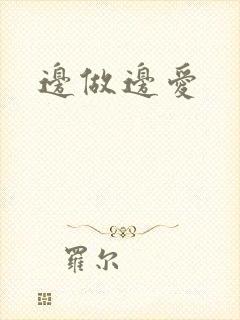 邊做邊愛
羅尔